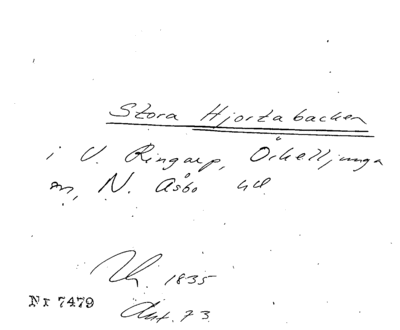 Stora Hjortabacken
i V. Ringarp, Örkelljunga
sn, N. Åsbo hd
1835
Nr 7479